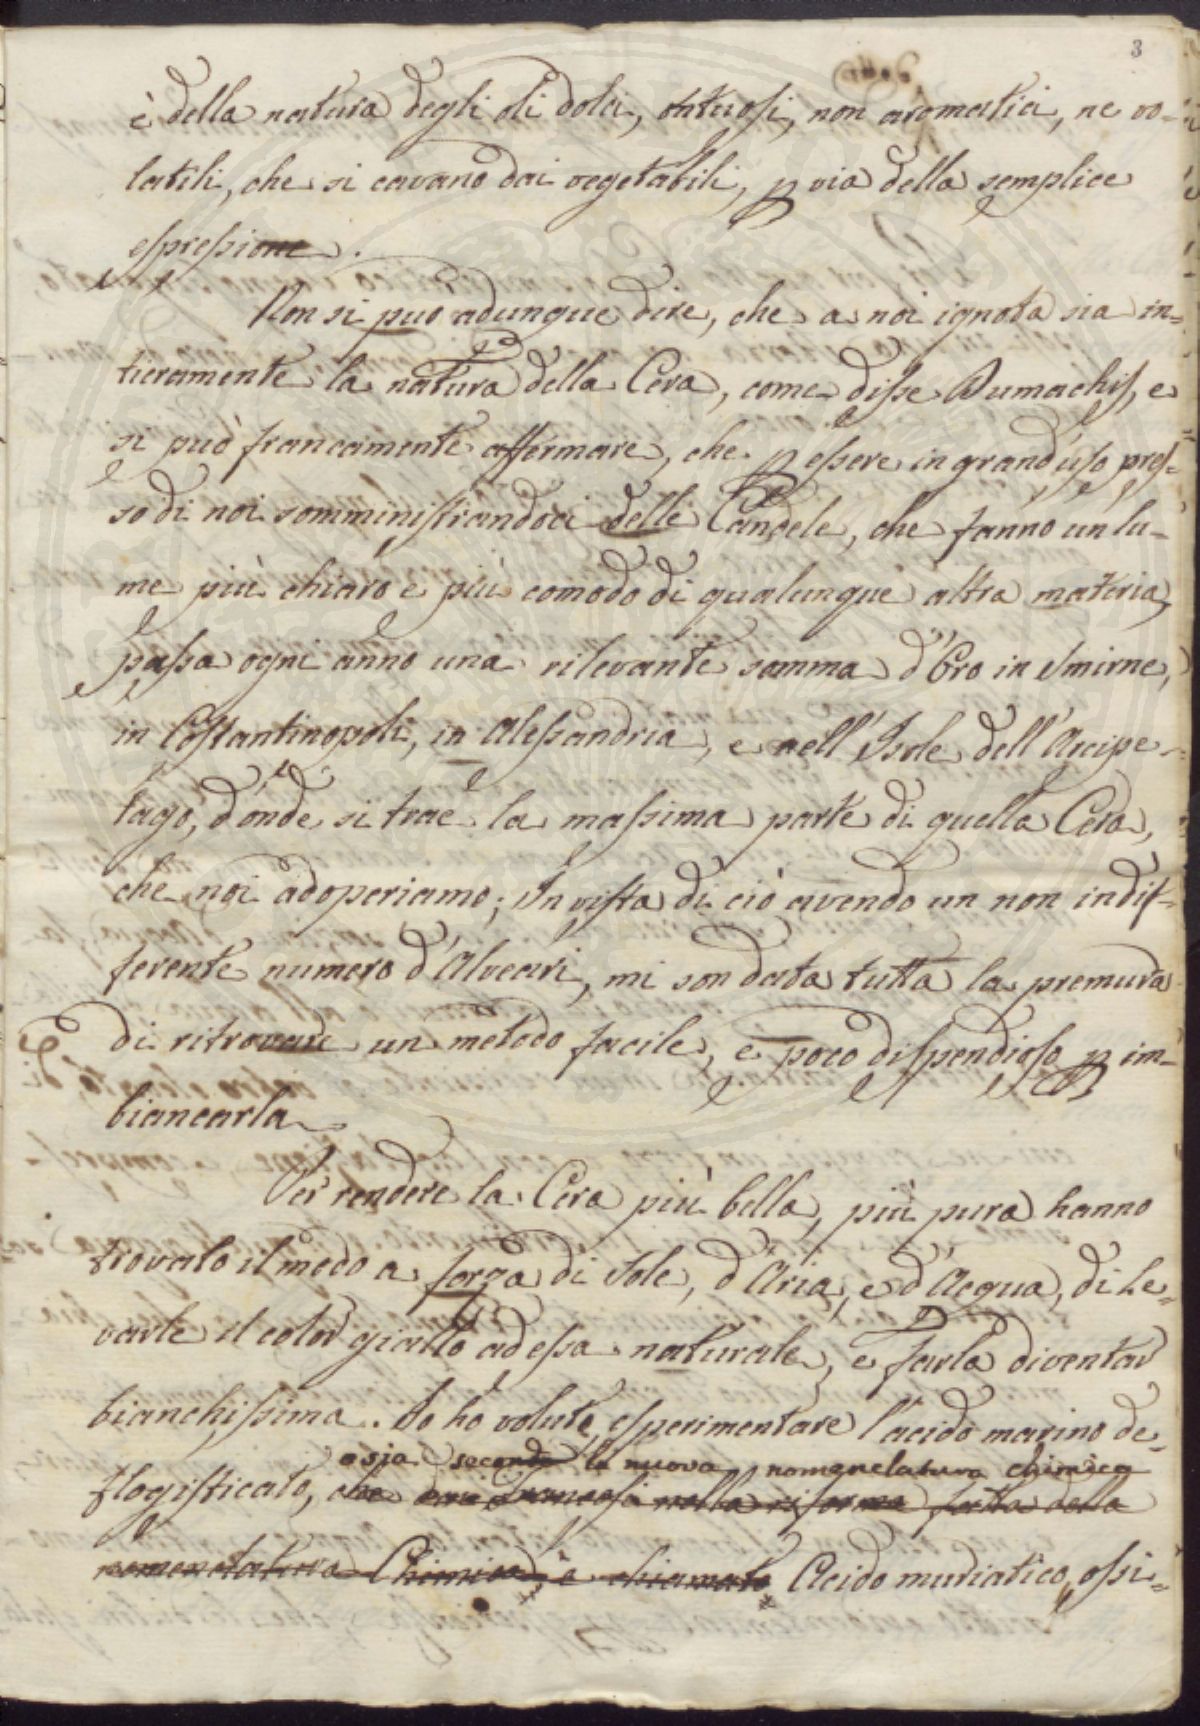 3
è della natura degli oli dolci, untuosi, non aromatici, ne vo-
latili, che si cavano dai vegetabili, p via della semplice
espressione.
Non si può adunque dire, che a noi ignota sia in=
tieramente la natura della Cera, come disse Dumachis, e
si può francamente affermare, che p essere in grand'uso pres-
so di noi somministrandoci delle Candele, che fanno un lu-
me più chiaro e più comodo di qualunque altra materia,
passa ogni anno una rilevante somma d'Oro in Smirne,
in Costantinopoli, in Alessandria, e nell'Isole dell'Arcipe-
lago, d'onde si trae la massima parte di quella Cera,
che noi adoperiamo; In vista di ciò avendo un non indif-
ferente numero d'Alveari, mi son data tutta la premura
di ritrovare un metodo facile, e poco dispendioso p im-
biancarla.
Per rendere la Cera più bella, più pura hanno
trovato il modo a forza di Sole, d'Aria, e d'Acqua, di Le-
varle il color giallo ad essa naturale, e farla diventar
bianchissima. Io ho voluto esperimentare l'acido marino de-
osia secondo la nuova nomenclatura chimica
flogisticato, che dai Francesi nella riforma fatta della
nomenclatura Chimica, è chiamato Acido muriatico ossi-